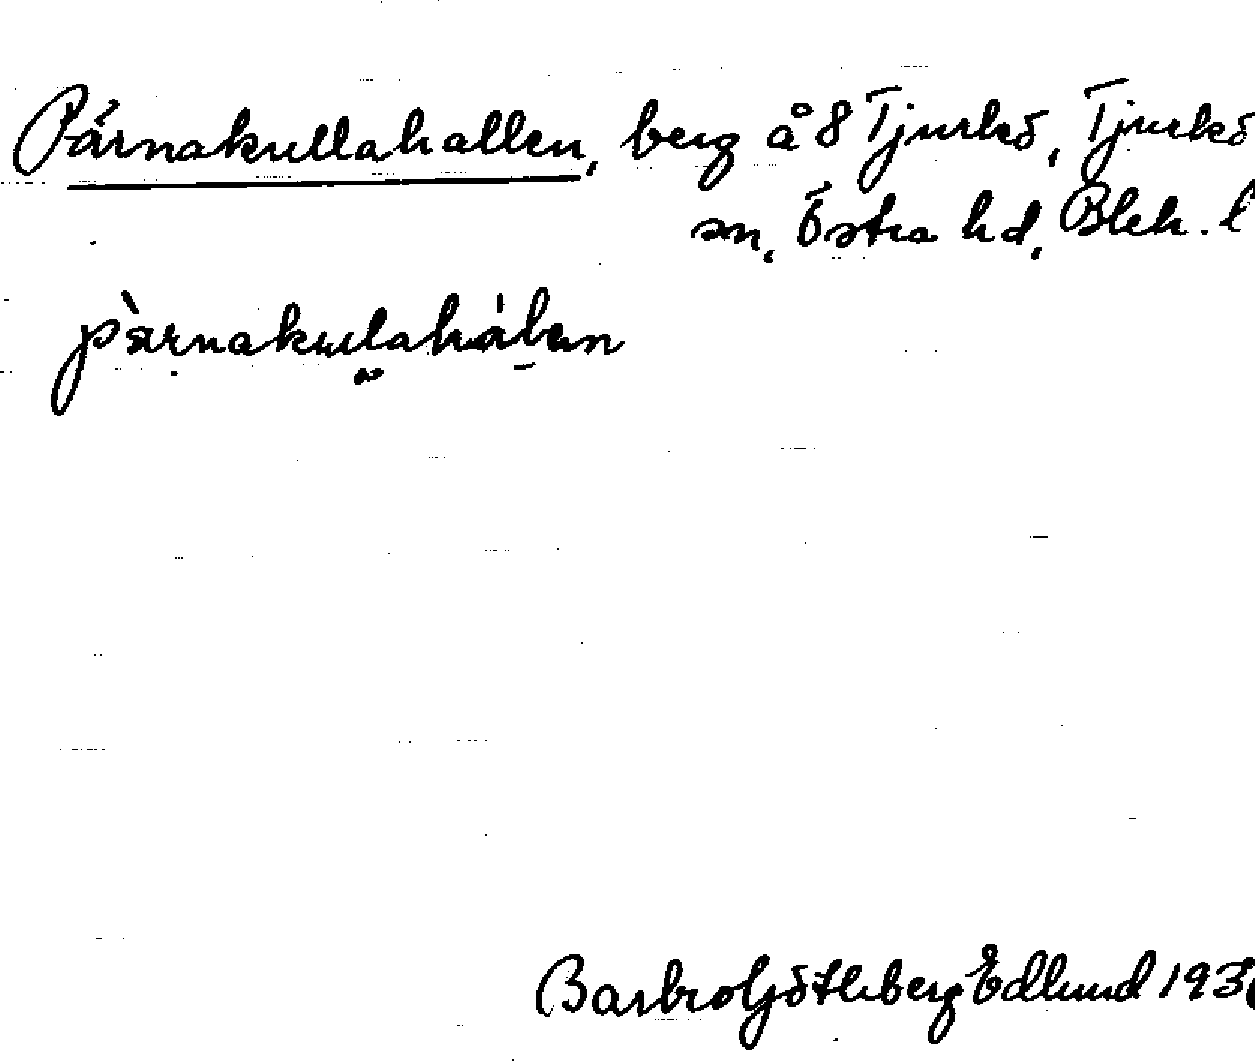 Pärnakullahallen, berg å 8 Tjurkö, Tjurkö
sn, Östra hd, Blek. l
pàrnakulahálen
Barbro Götheberg Edlund 193